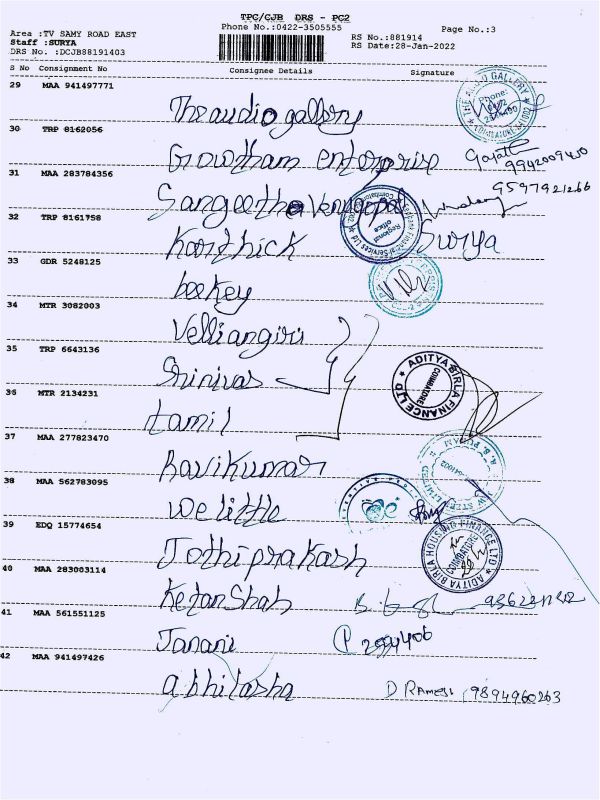 TPC/CJB DRS - PC2
Phone No.:0422-3505555
Page No.:3
Area :TV SAMY ROAD EAST
Staff :SURYA
DRS No. :DCJB88191403
RS No.:881914
RS Date:28-Jan-2022
S No Consignment No Consignee Details Signature
29 MAA 941497771
The audio gallery
30 TRP 8162056
Growtham enterprise
9942009400
31 MAA 283784356
9597921266
Sangeetha Venugopal
32 TRP 8161758
Karthick Surya
33 GDR 5248125
beekey
34 MTR 3082003
Velliangiri
35 TRP 6643136
Srinivas
ADITYA BIRLA FINANCE LTD
COIMBATORE
36 MTR 2134231
tamil
37 MAA 277823470
Ravikumar
38 MAA 562783095
we little
39 EDQ 15774654
Jothiprakash
ADITYA BIRLA HOUSING FINANCE LTD
COIMBATORE
40 MAA 283003114
Ketan Shah
41 MAA 561551125
Janani
42 MAA 941497426
abhilasha
D RAMESH 9894960263